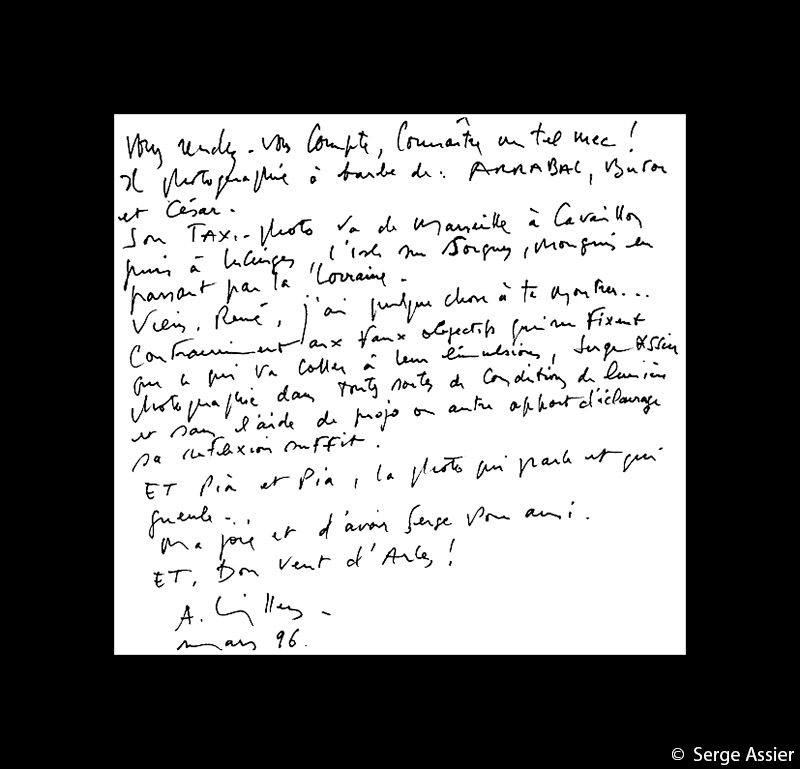 Vous rendez-vous Compte, Connaître un tel mec !
Il photographie à barbe de : ARRABAL, Butor
et César.
Son TAXI-photo va de Marseille à Cavaillon
puis à, l'Isle sur Sorgues, Mougins en
passant par la Lorraine.
Viens, René, j'ai quelque chose à te montrer...
Contrairement aux faux objectifs qui ne Fixent
que ce qui va coller à leur émulsions, Serge Assier
photographie dans toutes sortes de Conditions de lumière
et sans l'aide de projo ou autre apport d'éclairage
sa reflexion suffit.
ET Pia et Pia, la photo qui parle et qui
gueule...
Ma joie et d'avoir Serge pour ami.
ET, Bon Vent d'Arles !
A.
mars 96.
© Serge Assier